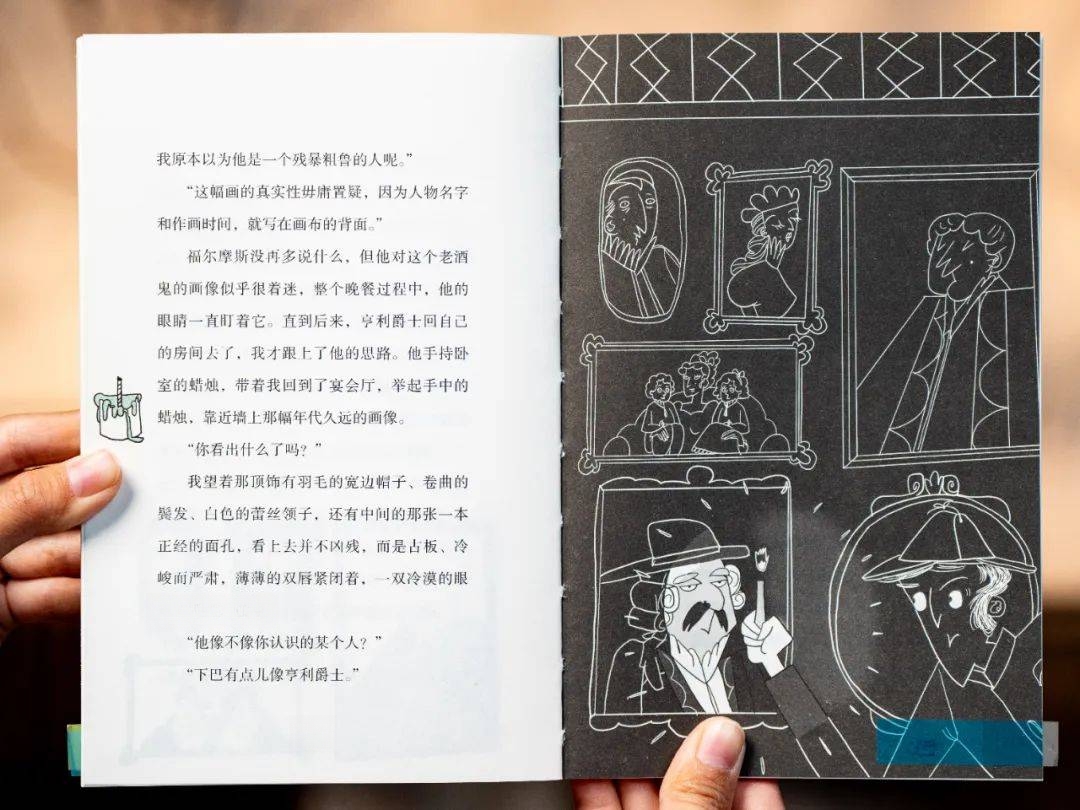 我原本以为他是一个残暴粗鲁的人呢。”
“这幅画的真实性毋庸置疑，因为人物名字
和作画时间，就写在画布的背面。”
福尔摩斯没再多说什么，但他对这个老酒
鬼的画像似乎很着迷，整个晚餐过程中，他的
眼睛一直盯着它。直到后来，亨利爵士回自己
的房间去了，我才跟上了他的思路。他手持卧
室的蜡烛，带着我回到了宴会厅，举起手中的
蜡烛，靠近墙上那幅年代久远的画像。
“你看出什么了吗？”
我望着那顶饰有羽毛的宽边帽子、卷曲的
鬓发、白色的蕾丝领子，还有中间的那张一本
正经的面孔，看上去并不凶残，而是古板、冷
峻而严肃，薄薄的双唇紧闭着，一双冷漠的眼
“他像不像你认识的某个人？”
“下巴有点儿像亨利爵士。”